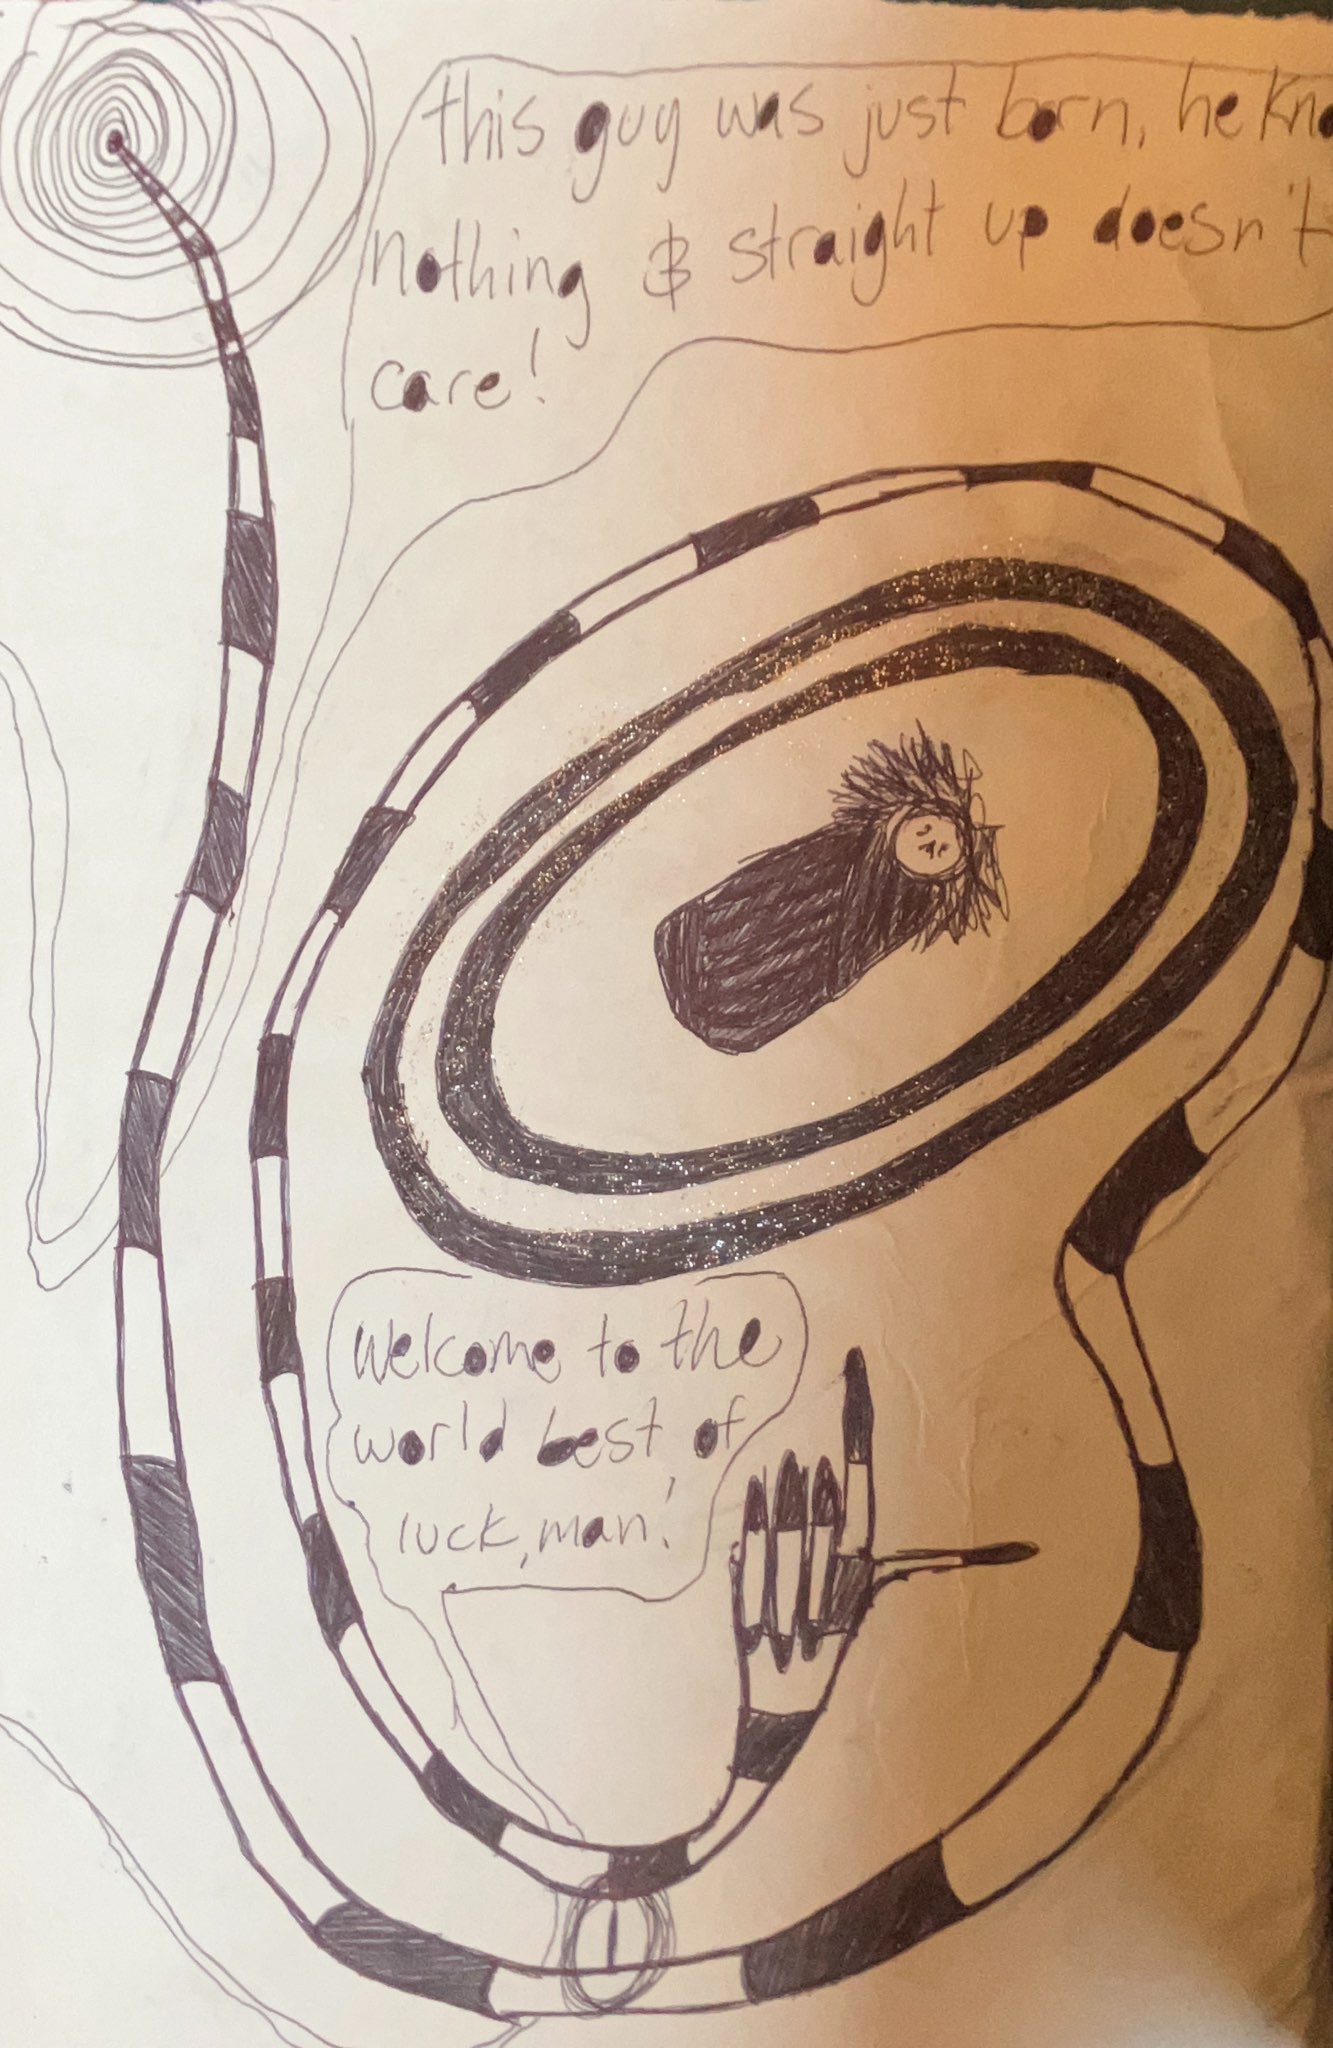 this guy was just born, he kno
nothing & straight up doesn't
care!
Welcome to the
world best, of
luck, man!